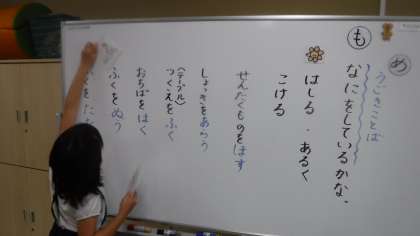 め
うごきことば
も
なにをしているかな。
はしる・あるく
こける
せんたくものをほす
しょっきをあらう
(テーブル)
つくえをふく
おちばをはく
ふくをぬう